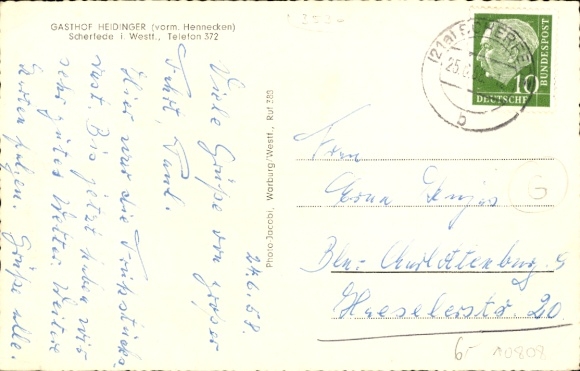 GASTHOF HEIDINGER (vorm. Hennecken)
Scherfede i. Westf., Telefon 372
24.6.58.
Viele Grüße von großer
Fahrt, Tant.
Hier war die Frühstücks
rast. Bis jetzt haben wir
sehr gutes Wetter. Weitere
Karten folgen. Grüße alle.
Photo-Jacobi, Warburg/Westf., Ruf 383
(21a)
25.6.58
b
10
DEUTSCHE
BUNDESPOST
Frau
Erna
Bln-Charlottenburg 9
Haeselerstr. 20
G
6-
10808